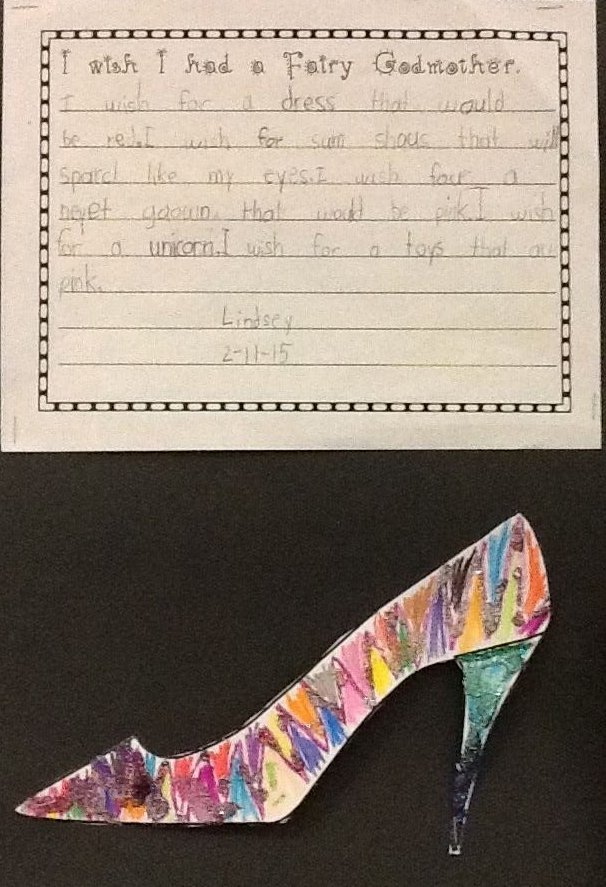 I wish I had a Fairy Godmother.
I wish for a dress that would
be red.I wish for sum shous that will
sparcl like my eyes.I wish four a
neyet gaown. that would be pink.I wish
for a unicorn.I wish for a toys that are
pink.
Lindsey
2-11-15